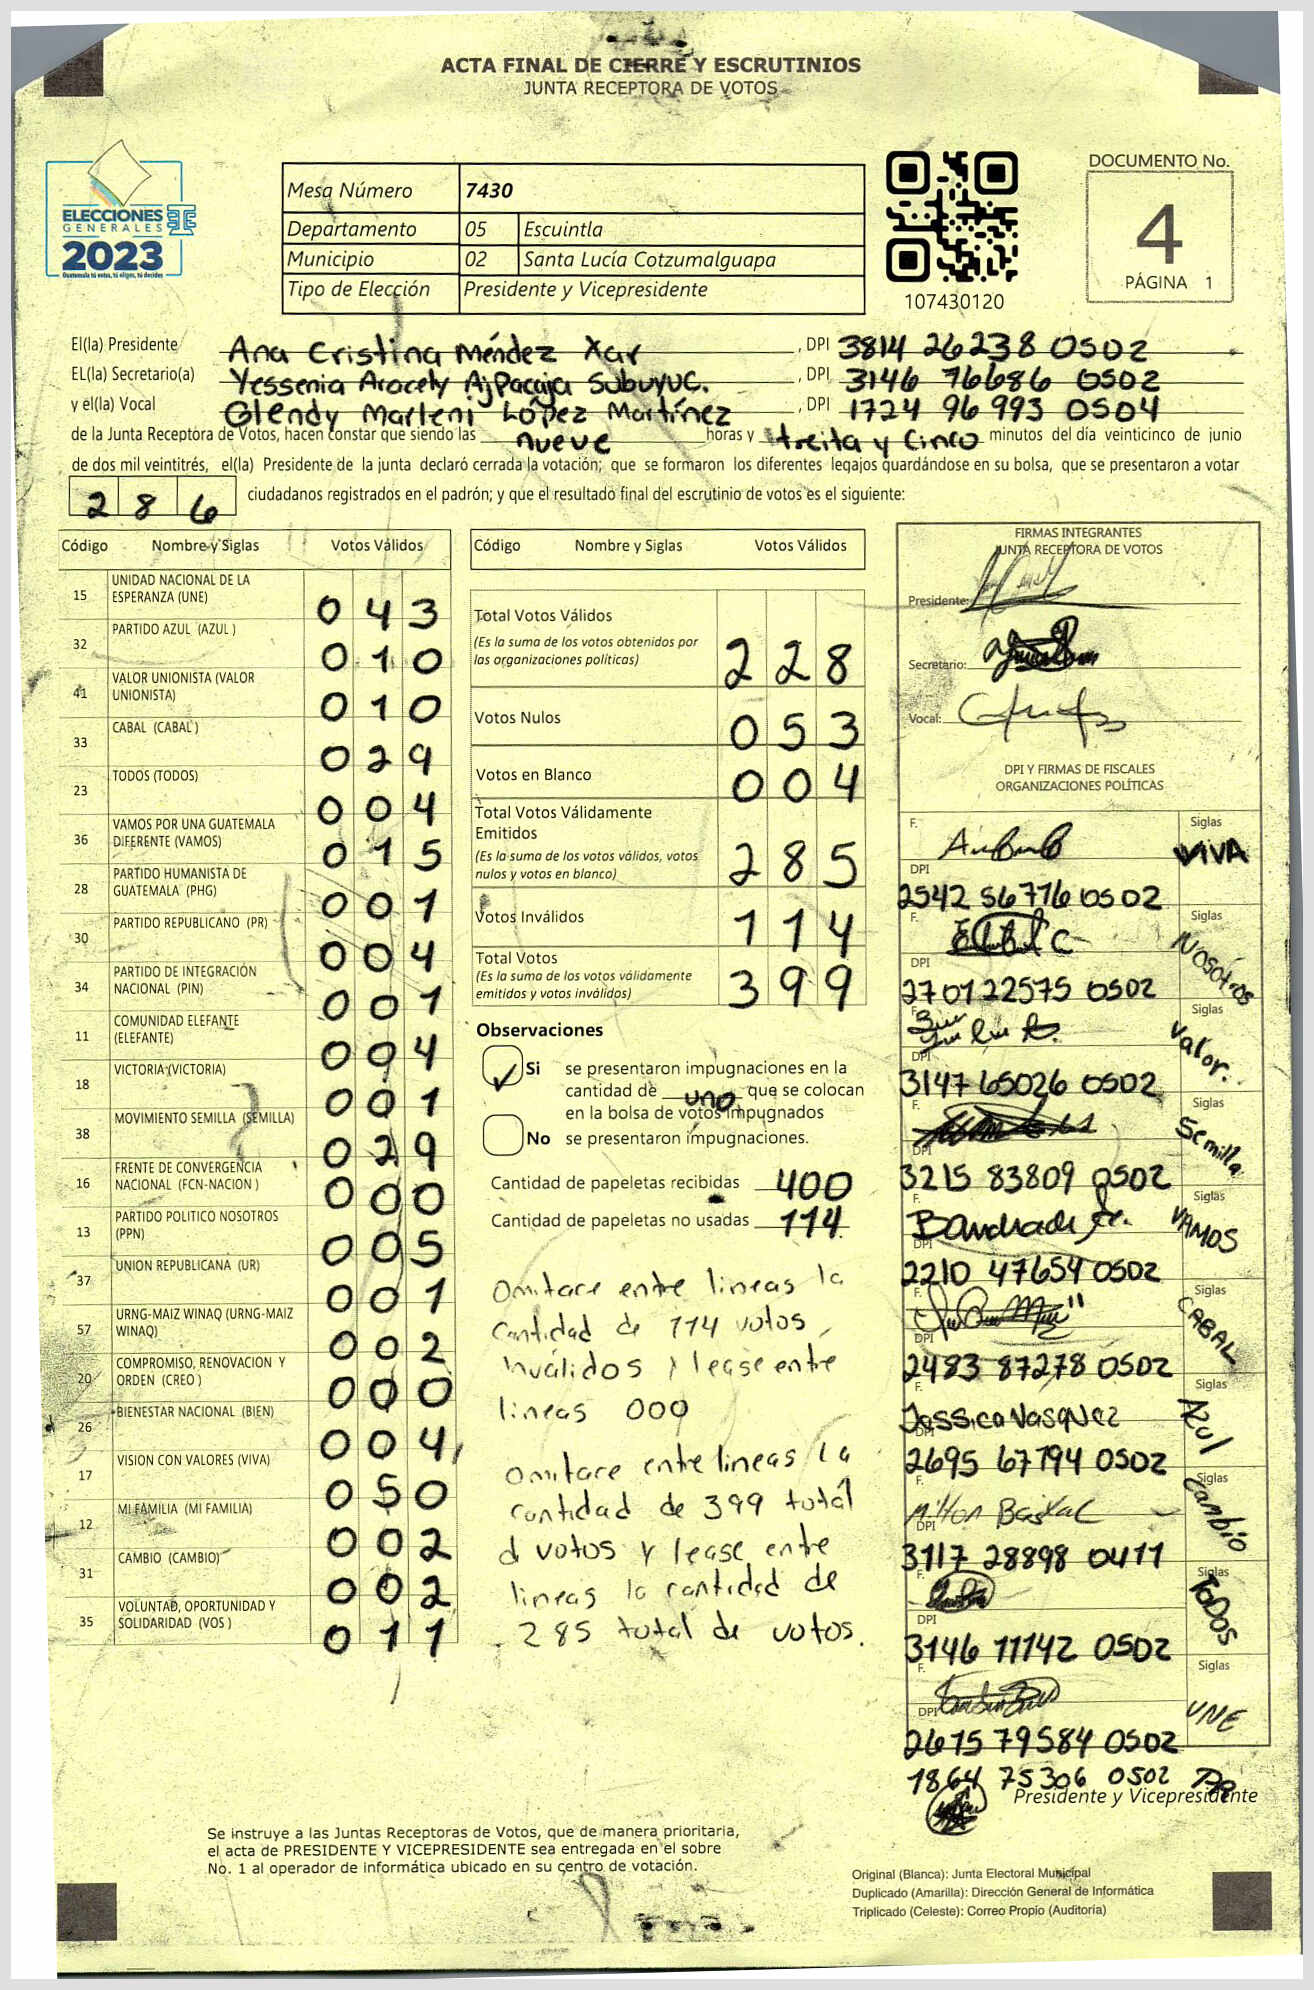 ACTA FINAL DE CIERRE Y ESCRUTINIOS
JUNTA RECEPTORA DE VOTOS
ELECCIONES
GENERALES
2023
Guatemala tú votas, tú eliges, tú decides
Mesa Número 7430
Departamento 05 Escuintla
Municipio 02 Santa Lucía Cotzumalguapa
Tipo de Elección Presidente y Vicepresidente
107430120
DOCUMENTO No.
4
PÁGINA 1
El(la) Presidente Ana Cristina Méndez Xar , DPI 3814 26238 0502
EL(la) Secretario(a) Yessenia Aracely AjPacaja Subuyuc. , DPI 3146 76686 0502
y el(la) Vocal Glendy Marleni López Martínez , DPI 1724 96 993 0504
de la Junta Receptora de Votos, hacen constar que siendo las nueve horas y treita y cinco minutos del día veinticinco de junio
de dos mil veintitrés, el(la) Presidente de la junta declaró cerrada la votación; que se formaron los diferentes legajos guardándose en su bolsa, que se presentaron a votar
286 ciudadanos registrados en el padrón; y que el resultado final del escrutinio de votos es el siguiente:
Código Nombre y Siglas Votos Válidos
15 UNIDAD NACIONAL DE LA ESPERANZA (UNE) 043
32 PARTIDO AZUL (AZUL ) 010
41 VALOR UNIONISTA (VALOR UNIONISTA) 010
33 CABAL (CABAL ) 029
23 TODOS (TODOS) 004
36 VAMOS POR UNA GUATEMALA DIFERENTE (VAMOS) 015
28 PARTIDO HUMANISTA DE GUATEMALA (PHG) 001
30 PARTIDO REPUBLICANO (PR) 004
34 PARTIDO DE INTEGRACIÓN NACIONAL (PIN) 001
11 COMUNIDAD ELEFANTE (ELEFANTE) 004
18 VICTORIA (VICTORIA) 001
38 MOVIMIENTO SEMILLA (SEMILLA) 029
16 FRENTE DE CONVERGENCIA NACIONAL (FCN-NACION ) 000
13 PARTIDO POLITICO NOSOTROS (PPN) 005
37 UNION REPUBLICANA (UR) 001
57 URNG-MAIZ WINAQ (URNG-MAIZ WINAQ) 002
20 COMPROMISO, RENOVACION Y ORDEN (CREO ) 000
26 BIENESTAR NACIONAL (BIEN) 004
17 VISION CON VALORES (VIVA) 050
12 MI FAMILIA (MI FAMILIA) 002
31 CAMBIO (CAMBIO) 002
35 VOLUNTAD, OPORTUNIDAD Y SOLIDARIDAD (VOS ) 011
Código Nombre y Siglas Votos Válidos
Total Votos Válidos
(Es la suma de los votos obtenidos por las organizaciones políticas) 228
Votos Nulos 053
Votos en Blanco 004
Total Votos Válidamente Emitidos
(Es la suma de los votos válidos, votos nulos y votos en blanco) 285
Votos Inválidos 114
Total Votos
(Es la suma de los votos válidamente emitidos y votos inválidos) 399
Observaciones
✓ Si se presentaron impugnaciones en la
cantidad de uno que se colocan
en la bolsa de votos impugnados
No se presentaron impugnaciones.
Cantidad de papeletas recibidas 400
Cantidad de papeletas no usadas 114
Omitace entre lineas la
cantidad de 114 votos
inválidos y lease entre
lineas 000
Omitace entre lineas la
cantidad de 399 total
d votos y lease entre
lineas la cantidad de
285 total de votos.
FIRMAS INTEGRANTES
JUNTA RECEPTORA DE VOTOS
Presidente:
Secretario:
Vocal:
DPI Y FIRMAS DE FISCALES
ORGANIZACIONES POLÍTICAS
F. Siglas VIVA
DPI
2542 56776 0502
F. Siglas NOSOTROS
DPI
2701 22575 0502
F. Siglas Valor.
DPI
3147 65026 0502
F. Siglas Semilla
DPI
3215 83809 0502
F. Siglas VAMOS
DPI
2210 47654 0502
F. Siglas CABAL
DPI
2483 87278 0502
F. Jessica Vasquez Siglas Azul
DPI
2695 67794 0502
F. Siglas Cambio
DPI
3117 28898 0411
F. Siglas TODOS
DPI
3146 11142 0502
F. Siglas UNE
DPI
2675 79584 0502
1864 75306 0502
Presidente y Vicepresidente
Se instruye a las Juntas Receptoras de Votos, que de manera prioritaria,
el acta de PRESIDENTE Y VICEPRESIDENTE sea entregada en el sobre
No. 1 al operador de informática ubicado en su centro de votación.
Original (Blanca): Junta Electoral Municipal
Duplicado (Amarilla): Dirección General de Informática
Triplicado (Celeste): Correo Propio (Auditoría)